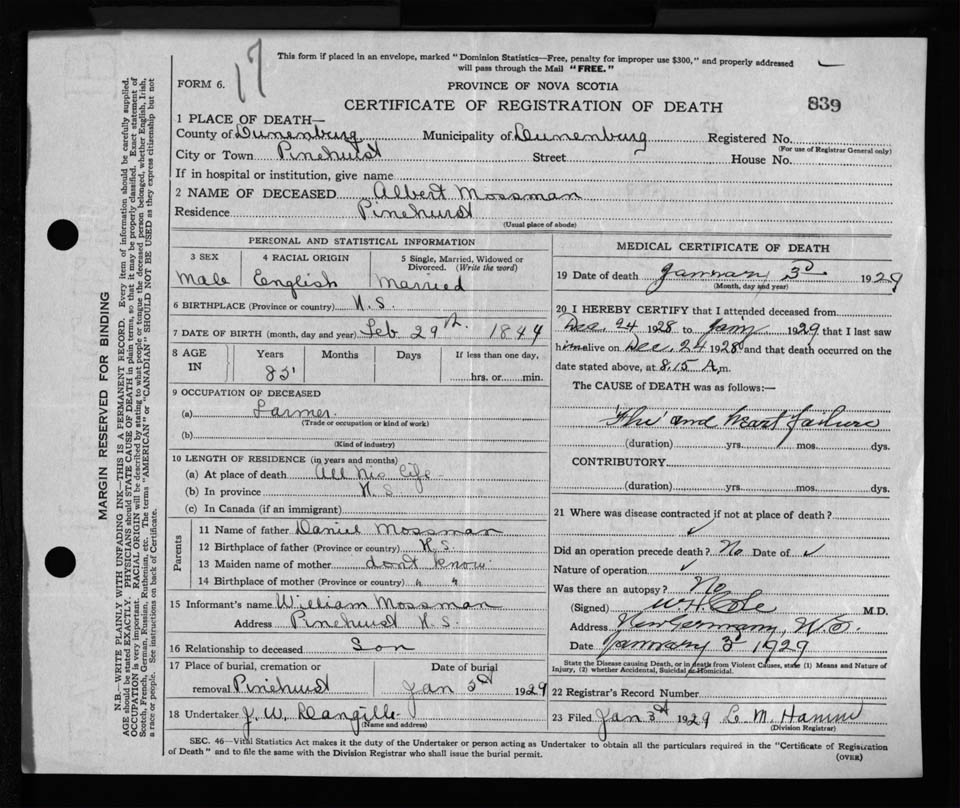 This form if placed in an envelope, marked "Dominion Statistics—Free, penalty for improper use $300," and properly addressed
will pass through the Mail "FREE."
FORM 6.
17
PROVINCE OF NOVA SCOTIA
CERTIFICATE OF REGISTRATION OF DEATH
839
1 PLACE OF DEATH—
County of Lunenburg Municipality of Lunenburg Registered No.
(For use of Registrar General only)
City or Town Pinehurst Street House No.
If in hospital or institution, give name
2 NAME OF DECEASED Albert Mossman
Residence Pinehurst
(Usual place of abode)
PERSONAL AND STATISTICAL INFORMATION
3 SEX 4 RACIAL ORIGIN 5 Single, Married, Widowed or Divorced. (Write the word)
Male English Married
6 BIRTHPLACE (Province or country) N.S.
7 DATE OF BIRTH (month, day and year) Feb 29th 1844
8 AGE IN Years Months Days If less than one day,
85 hrs. or min.
9 OCCUPATION OF DECEASED
(a) Farmer.
(Trade or occupation or kind of work)
(b)
(Kind of industry)
10 LENGTH OF RESIDENCE (in years and months)
(a) At place of death All his life
(b) In province N.S.
(c) In Canada (if an immigrant)
Parents
11 Name of father Daniel Mossman
12 Birthplace of father (Province or country) N.S.
13 Maiden name of mother don't know.
14 Birthplace of mother (Province or country) " "
15 Informant's name William Mossman
Address Pinehurst N.S.
16 Relationship to deceased Son
17 Place of burial, cremation or Date of burial
removal Pinehurst Jan 5th 1929
18 Undertaker J. W.
(Name and address)
MEDICAL CERTIFICATE OF DEATH
19 Date of death January 3rd 1929
(Month, day and year)
20 I HEREBY CERTIFY that I attended deceased from
Dec. 24 1928 to Jany 1929 that I last saw
him alive on Dec. 24 1928 and that death occurred on the
date stated above, at 8.15 A.m.
The CAUSE of DEATH was as follows:—
"Flu" and heart failure
(duration) yrs. mos. dys.
CONTRIBUTORY
(duration) yrs. mos. dys.
21 Where was disease contracted if not at place of death?
✓
Did an operation precede death? No Date of ✓
Nature of operation ✓
Was there an autopsy? No
(Signed) W H Cole M.D.
Address New Germany, N.S.
Date January 3 1929
State the Disease causing Death, or in death from Violent Causes, state (1) Means and Nature of
Injury, (2) whether Accidental, Suicidal or Homicidal.
22 Registrar's Record Number
23 Filed Jan 3rd 1929 L. M.
(Division Registrar)
SEC. 46—Vital Statistics Act makes it the duty of the Undertaker or person acting as Undertaker to obtain all the particulars required in the "Certificate of Registration
of Death" and to file the same with the Division Registrar who shall issue the burial permit.
(OVER)
MARGIN RESERVED FOR BINDING
N.B.—WRITE PLAINLY WITH UNFADING INK—THIS IS A PERMANENT RECORD. Every item of information should be carefully supplied.
AGE should be stated EXACTLY. PHYSICIANS should STATE CAUSE OF DEATH in plain terms, so that it may be properly classified. Exact statement of
OCCUPATION is very important. RACIAL ORIGIN will be described by stating to what people or tongue the deceased person belonged, whether English, Irish,
Scotch, French, German, Russian, Ruthenian, etc. The terms "AMERICAN" or "CANADIAN" SHOULD NOT BE USED as they express citizenship but not
a race or people. See instructions on back of Certificate.